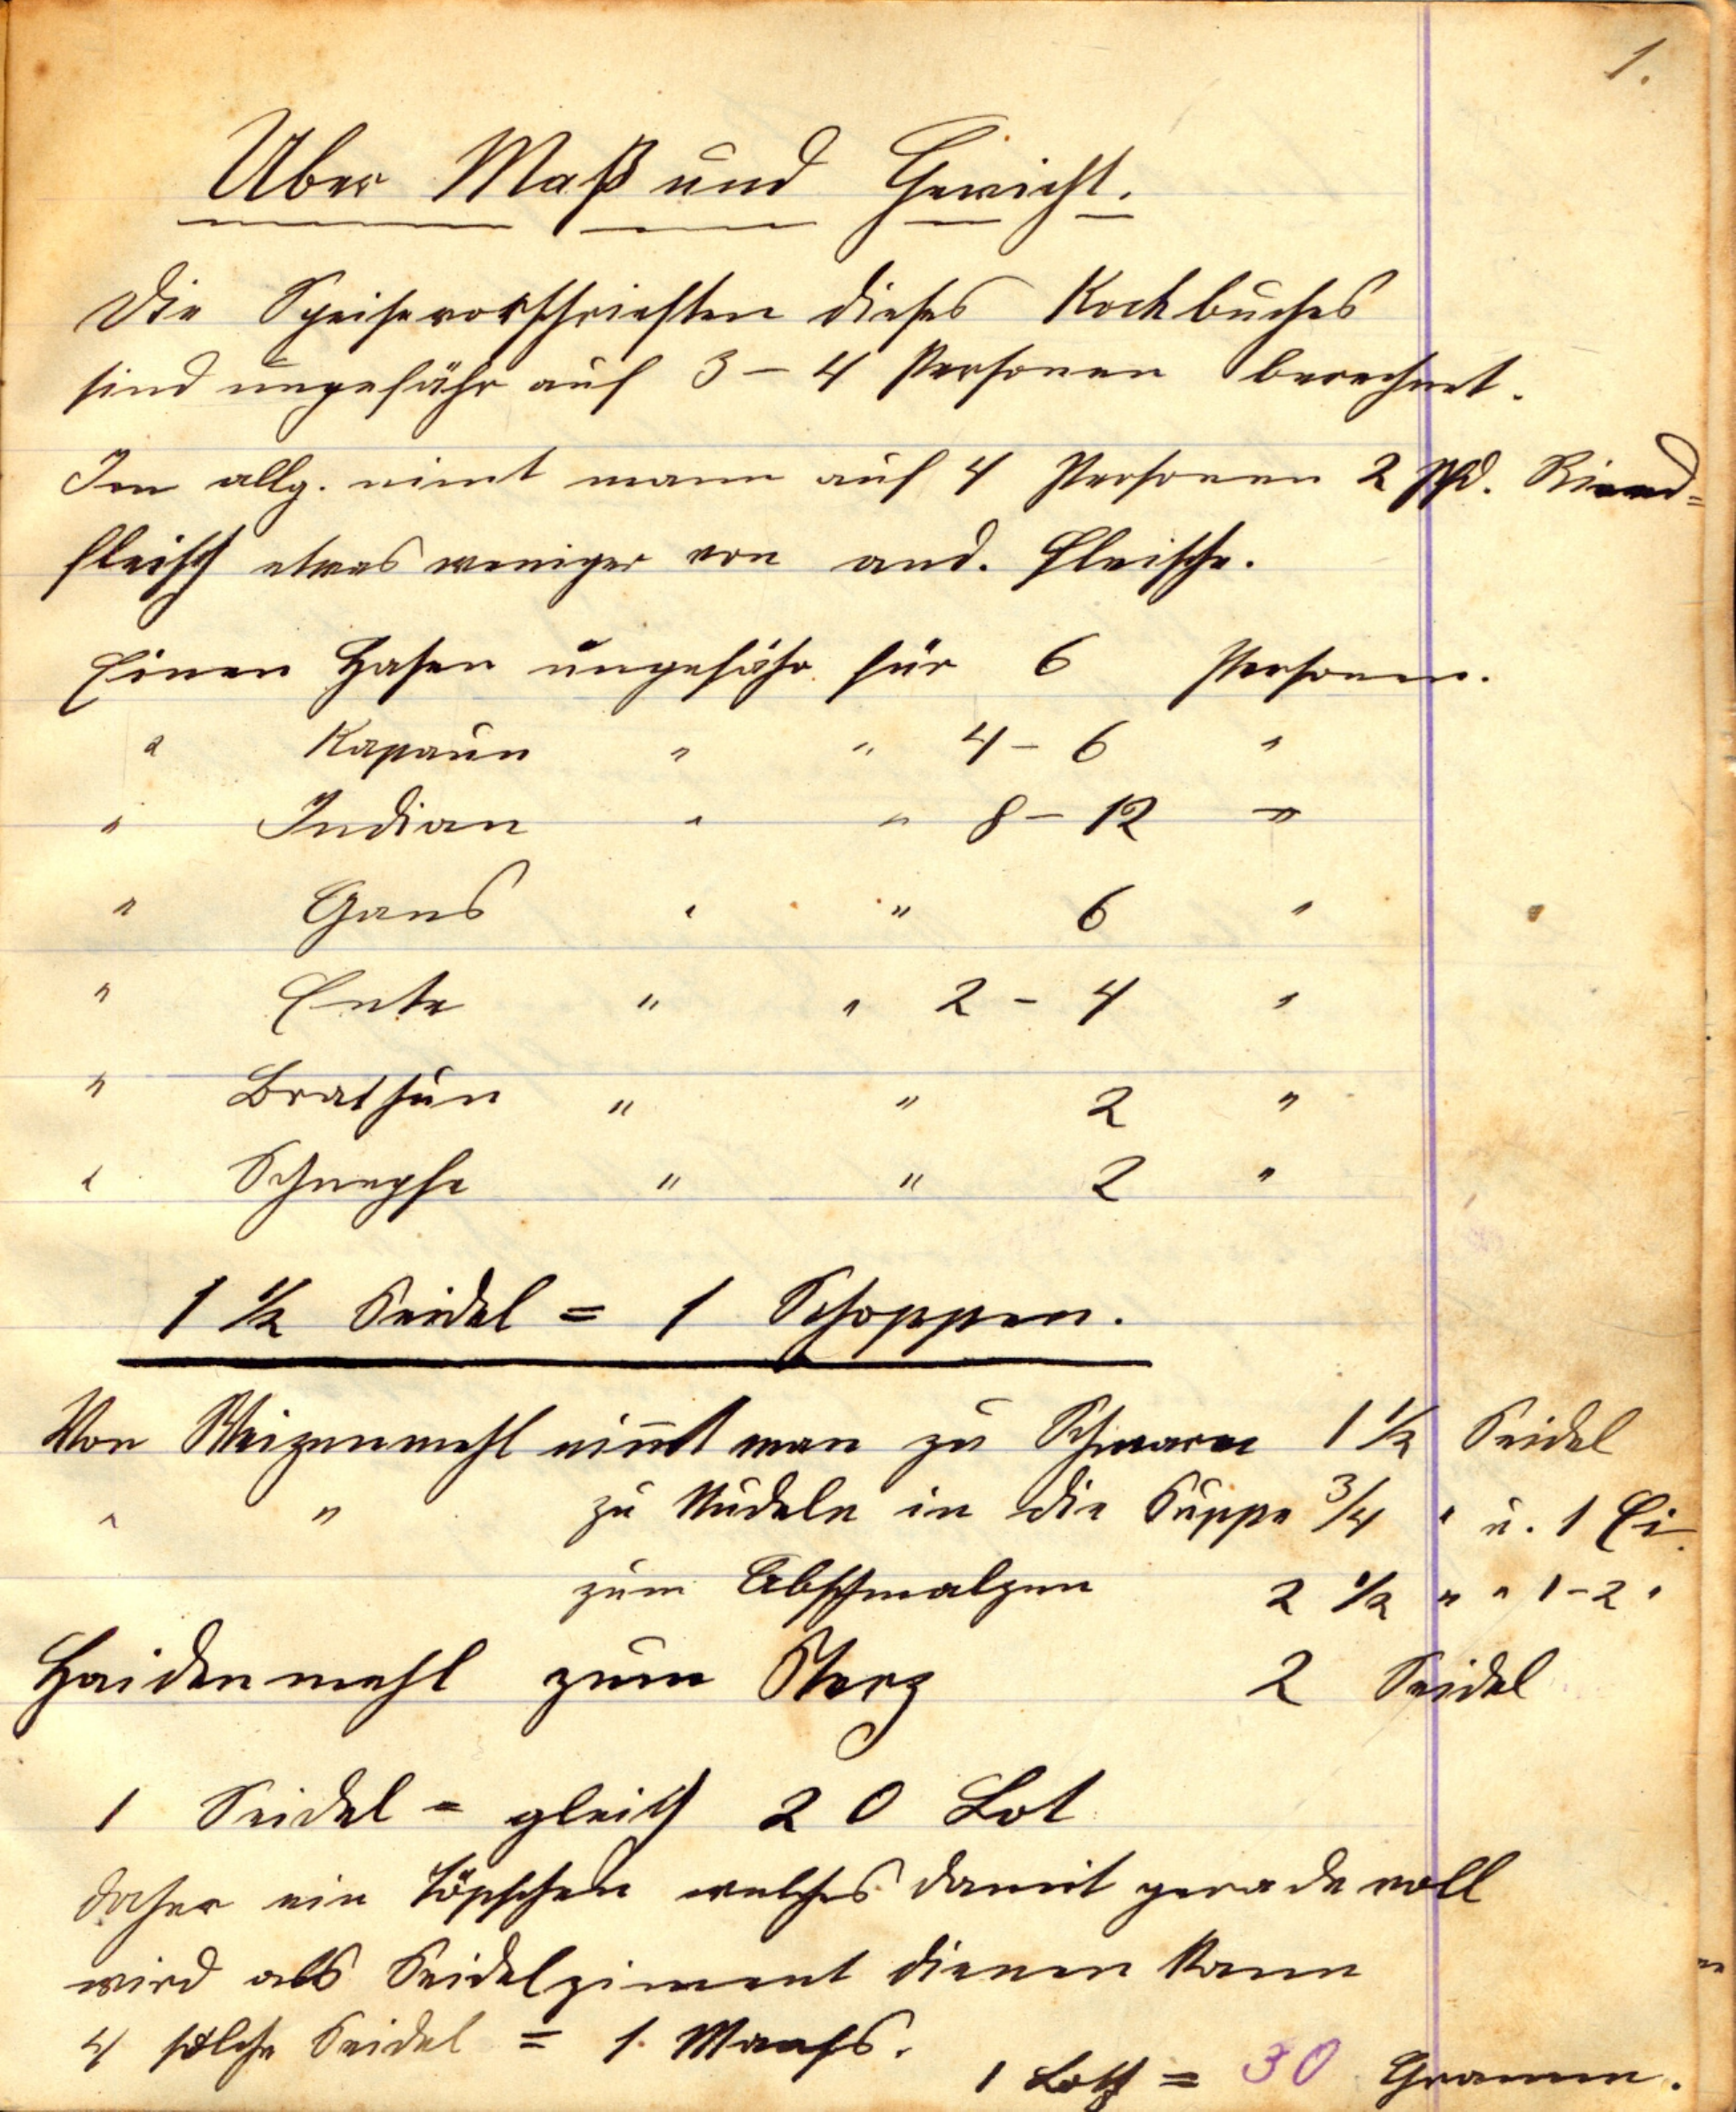 1.
Über Maß und Gewicht.
Die Speisevorschriften dieses Kochbuches
sind ungefähr auf 3 – 4 Personen berechnet.
Im allg. nimt mann auf 4 Personen 2 Pfd. Rind=
fleisch etwas weniger von and. Fleische.
Einen Hasen ungefähr für 6 Personen.
" Kapaun " " 4 – 6 "
" Indian " " 8 – 12 "
" Gans " " 6 "
" Ente " " 2 – 4 "
" Brathun " " 2 "
" Schnepfe " " 2 "
1 ½ Seidel = 1 Schoppen.
Von Weizenmehl nim̅t man zu Schmarn 1 ½ Seidel
" " zu Nudeln in die Suppe ¾ " u. 1 Ei.
zum Abschmalzen 2 ½ " " 1 – 2 "
Haidenmehl zum Sterz 2 Seidel
1 Seidel = gleich 20 Lot
daher ein Töpfchen welches damit gerade voll
wird als Seidelziment dienen kann
4 solche Seidel = 1 Maass.
1 Loth = 30 Gramm.